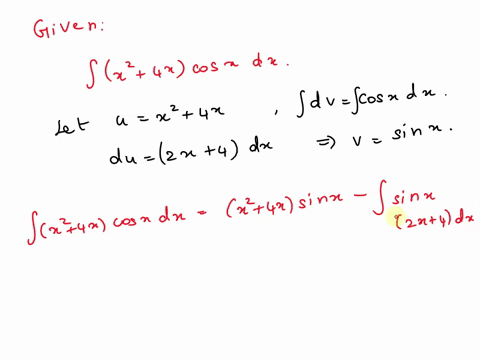 Given:
∫(x²+4x) cosx dx.
Let u = x²+4x , ∫dv=∫cosx dx.
du=(2x+4) dx ⇒ v = sinx.
∫(x²+4x) cosx dx = (x²+4x) sinx − ∫ sinx
(2x+4) dx